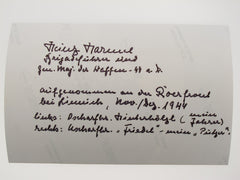 Heinz Harmel
Brigadeführer und
Gen. Maj. der Waffen-SS a. D.
aufgenommen an der Roerfront
bei Linnich, Nov./Dez. 1944
links: Oscharfhr. Hinterholzl (mein Fahrer)
rechts: Uscharfhr. "Friedel" - mein "Putzer"